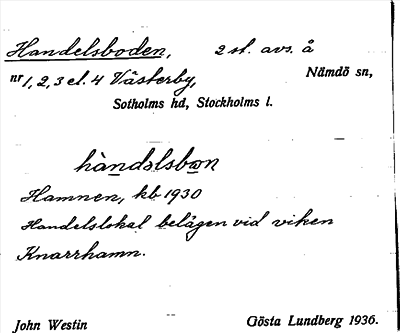 Handelsboden, 2 st. avs. å
nr 1, 2, 3 el. 4 Västerby, Nämdö sn,
Sotholms hd, Stockholms l.
hàndəlsbωn
Hamnen, kb 1930
Handelslokal belägen vid viken
Knarrhamn.
John Westin Gösta Lundberg 1936.